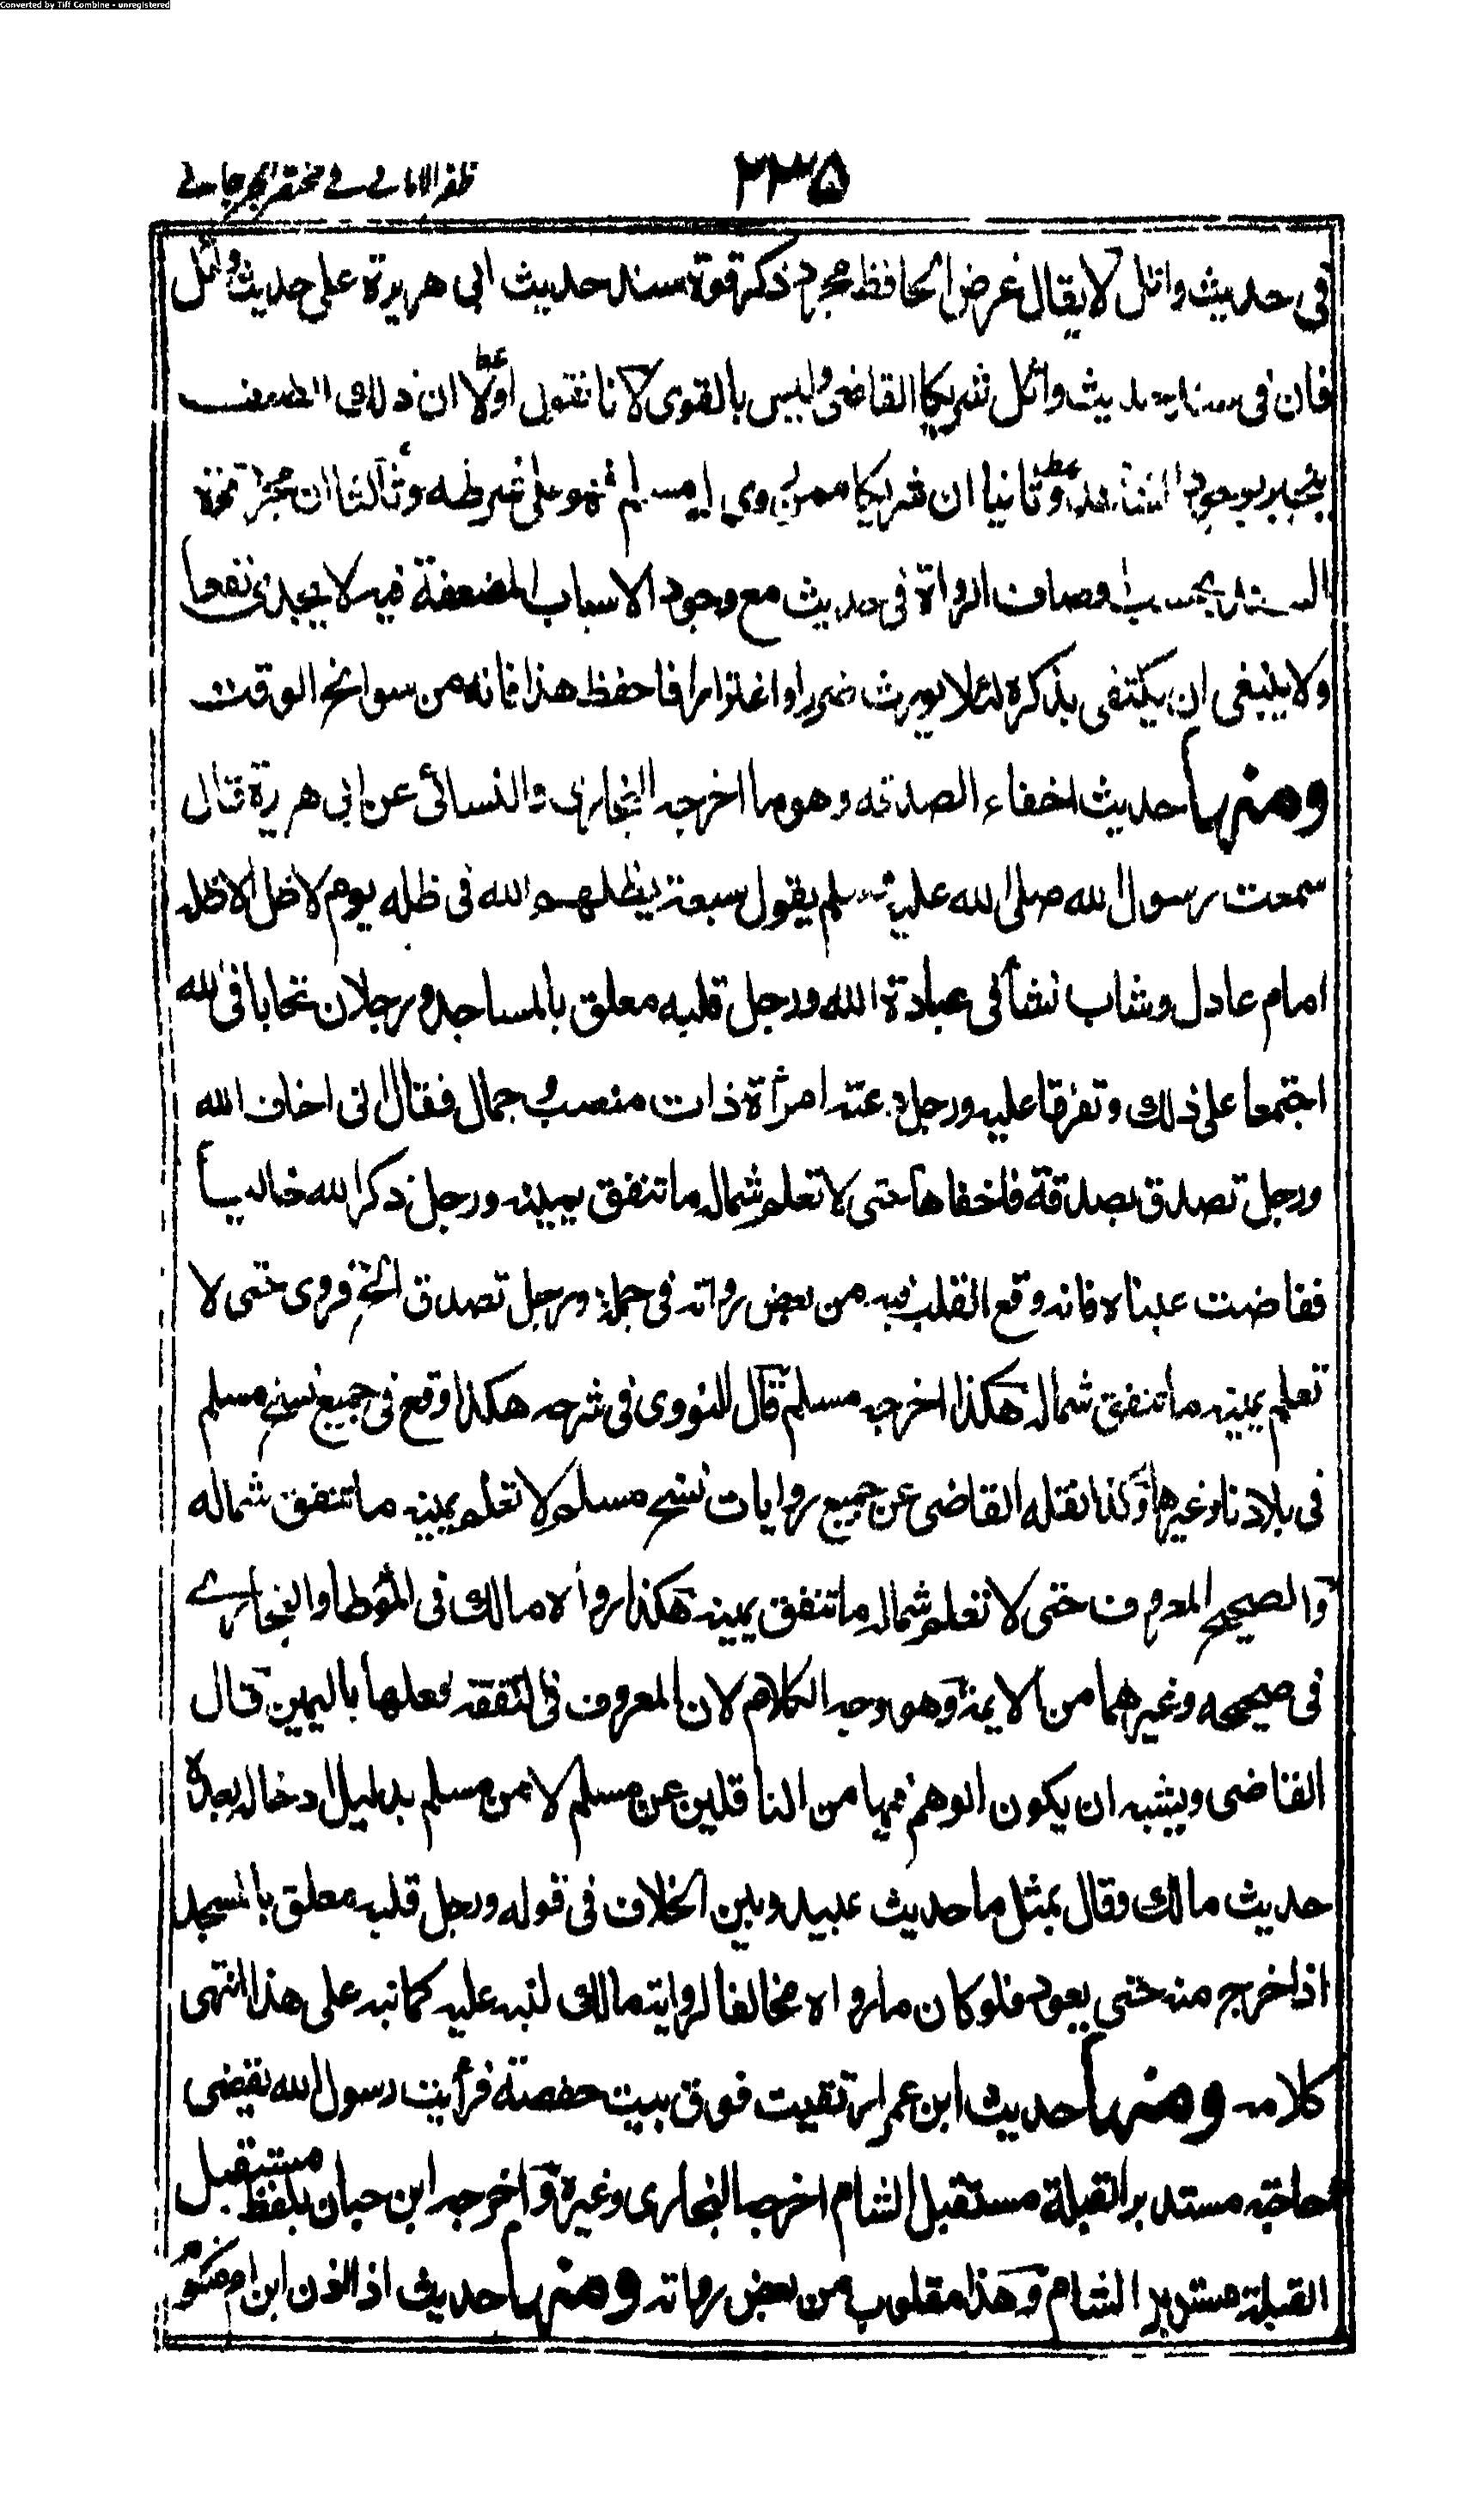 Converted by Tiff Combine - unregistered
٢٣٥
ظفر الامانے فے مختصر الجرجانے
فی حدیث وائل لا یقال غرض الحافظ مجرد ذکر قوة سند حدیث ابی هریرة علی حدیث وائل
فان فی سند حدیث وائل شریکا القاضی ولیس بالقوی لانا نقول اولا ان ذلک الضعف
ینجبر بوجود الشاهد وثانیا ان شریکا ممن روی له مسلم فهو علی شرطه وثالثا ان مجرد قوة
السند بحسب اوصاف الرواة فی حدیث مع وجود الاسباب المضعفة فیه لا یجدی نفعا
ولا ینبغی ان یکتفی بذکره لئلا یورث ضررا واغترارا فاحفظ هذا فانه من سوانح الوقت
ومنها حدیث اخفاء الصدقه وهو ما اخرجه البخاری والنسائی عن ابی هریرة قال
سمعت رسول الله صلی الله علیه وسلم یقول سبعة یظلهم الله فی ظله یوم لا ظل الا ظله
امام عادل وشاب نشأ فی عبادة الله ورجل قلبه معلق بالمساجد ورجلان تحابا فی الله
اجتمعا علی ذلک وتفرقا علیه ورجل دعته امرأة ذات منصب وجمال فقال انی اخاف الله
ورجل تصدق بصدقة فاخفاها حتی لا تعلم شماله ما تنفق یمینه ورجل ذکر الله خالیاً
ففاضت عیناه فانه وقع القلب فیه من بعض رواته فی جملة ورجل تصدق الخ فروی حتی لا
تعلم یمینه ما تنفق شماله هکذا اخرجه مسلم قال النووی فی شرحه هکذا وقع فی جمیع نسخ مسلم
فی بلادنا وغیرها وکذا نقله القاضی عن جمیع روایات نسخ مسلم لا تعلم یمینه ما تنفق شماله
والصحیح المعروف حتی لا تعلم شماله ما تنفق یمینه هکذا رواه مالک فی المؤطا والبخارے
فی صحیحه وغیرهما من الایمة وهو وجه الکلام لان المعروف فی النفقه فعلها بالیمین قال
القاضی ویشبه ان یکون الوهم فیها من الناقلین عن مسلم لا من مسلم بدلیل ادخاله بعده
حدیث مالک وقال بمثل ما حدیث عبید وبین الخلاف فی قوله ورجل قلبه معلق بالمسجد
اذا خرج منه حتی یعود فلو کان ما رواه مخالفا لروایة مالک لنبه علیه کما نبه علی هذا انتهی
کلامه ومنها حدیث ابن عمر ارتقیت فوق بیت حفصة فرأیت رسول الله یقضی
حاجته مستدبر القبلة مستقبل الشام اخرجه البخاری وغیره واخرجه ابن حبان بلفظ مستقبل
القبلة مستدبر الشام وهذا مقلوب من بعض رواته ومنها حدیث اذا اذن ابن ام مکتوم